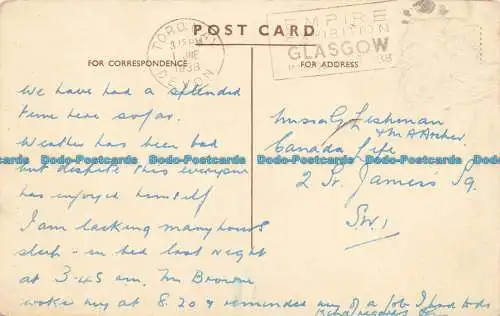 POST CARD
FOR CORRESPONDENCE
FOR ADDRESS
TORQUAY
3.15 PM
1 JNE
1938
DEVON
EMPIRE
EXHIBITION
GLASGOW
We have had a splendid
time here so far.
Weather has been bad
but despite this everyone
has enjoyed himself
I am lacking many hours
sleep - in bed last night
at 3-45 am. Mr Browne
woke me at 8.20 & reminded me of a job I had to do
Kind regards
Miss G Leshman
& M A Archer
Canada Life
2 St. James's Sq.
S.W.1
Dodo-Postcards Dodo-Postcards Dodo-Postcards Dodo-Postcards